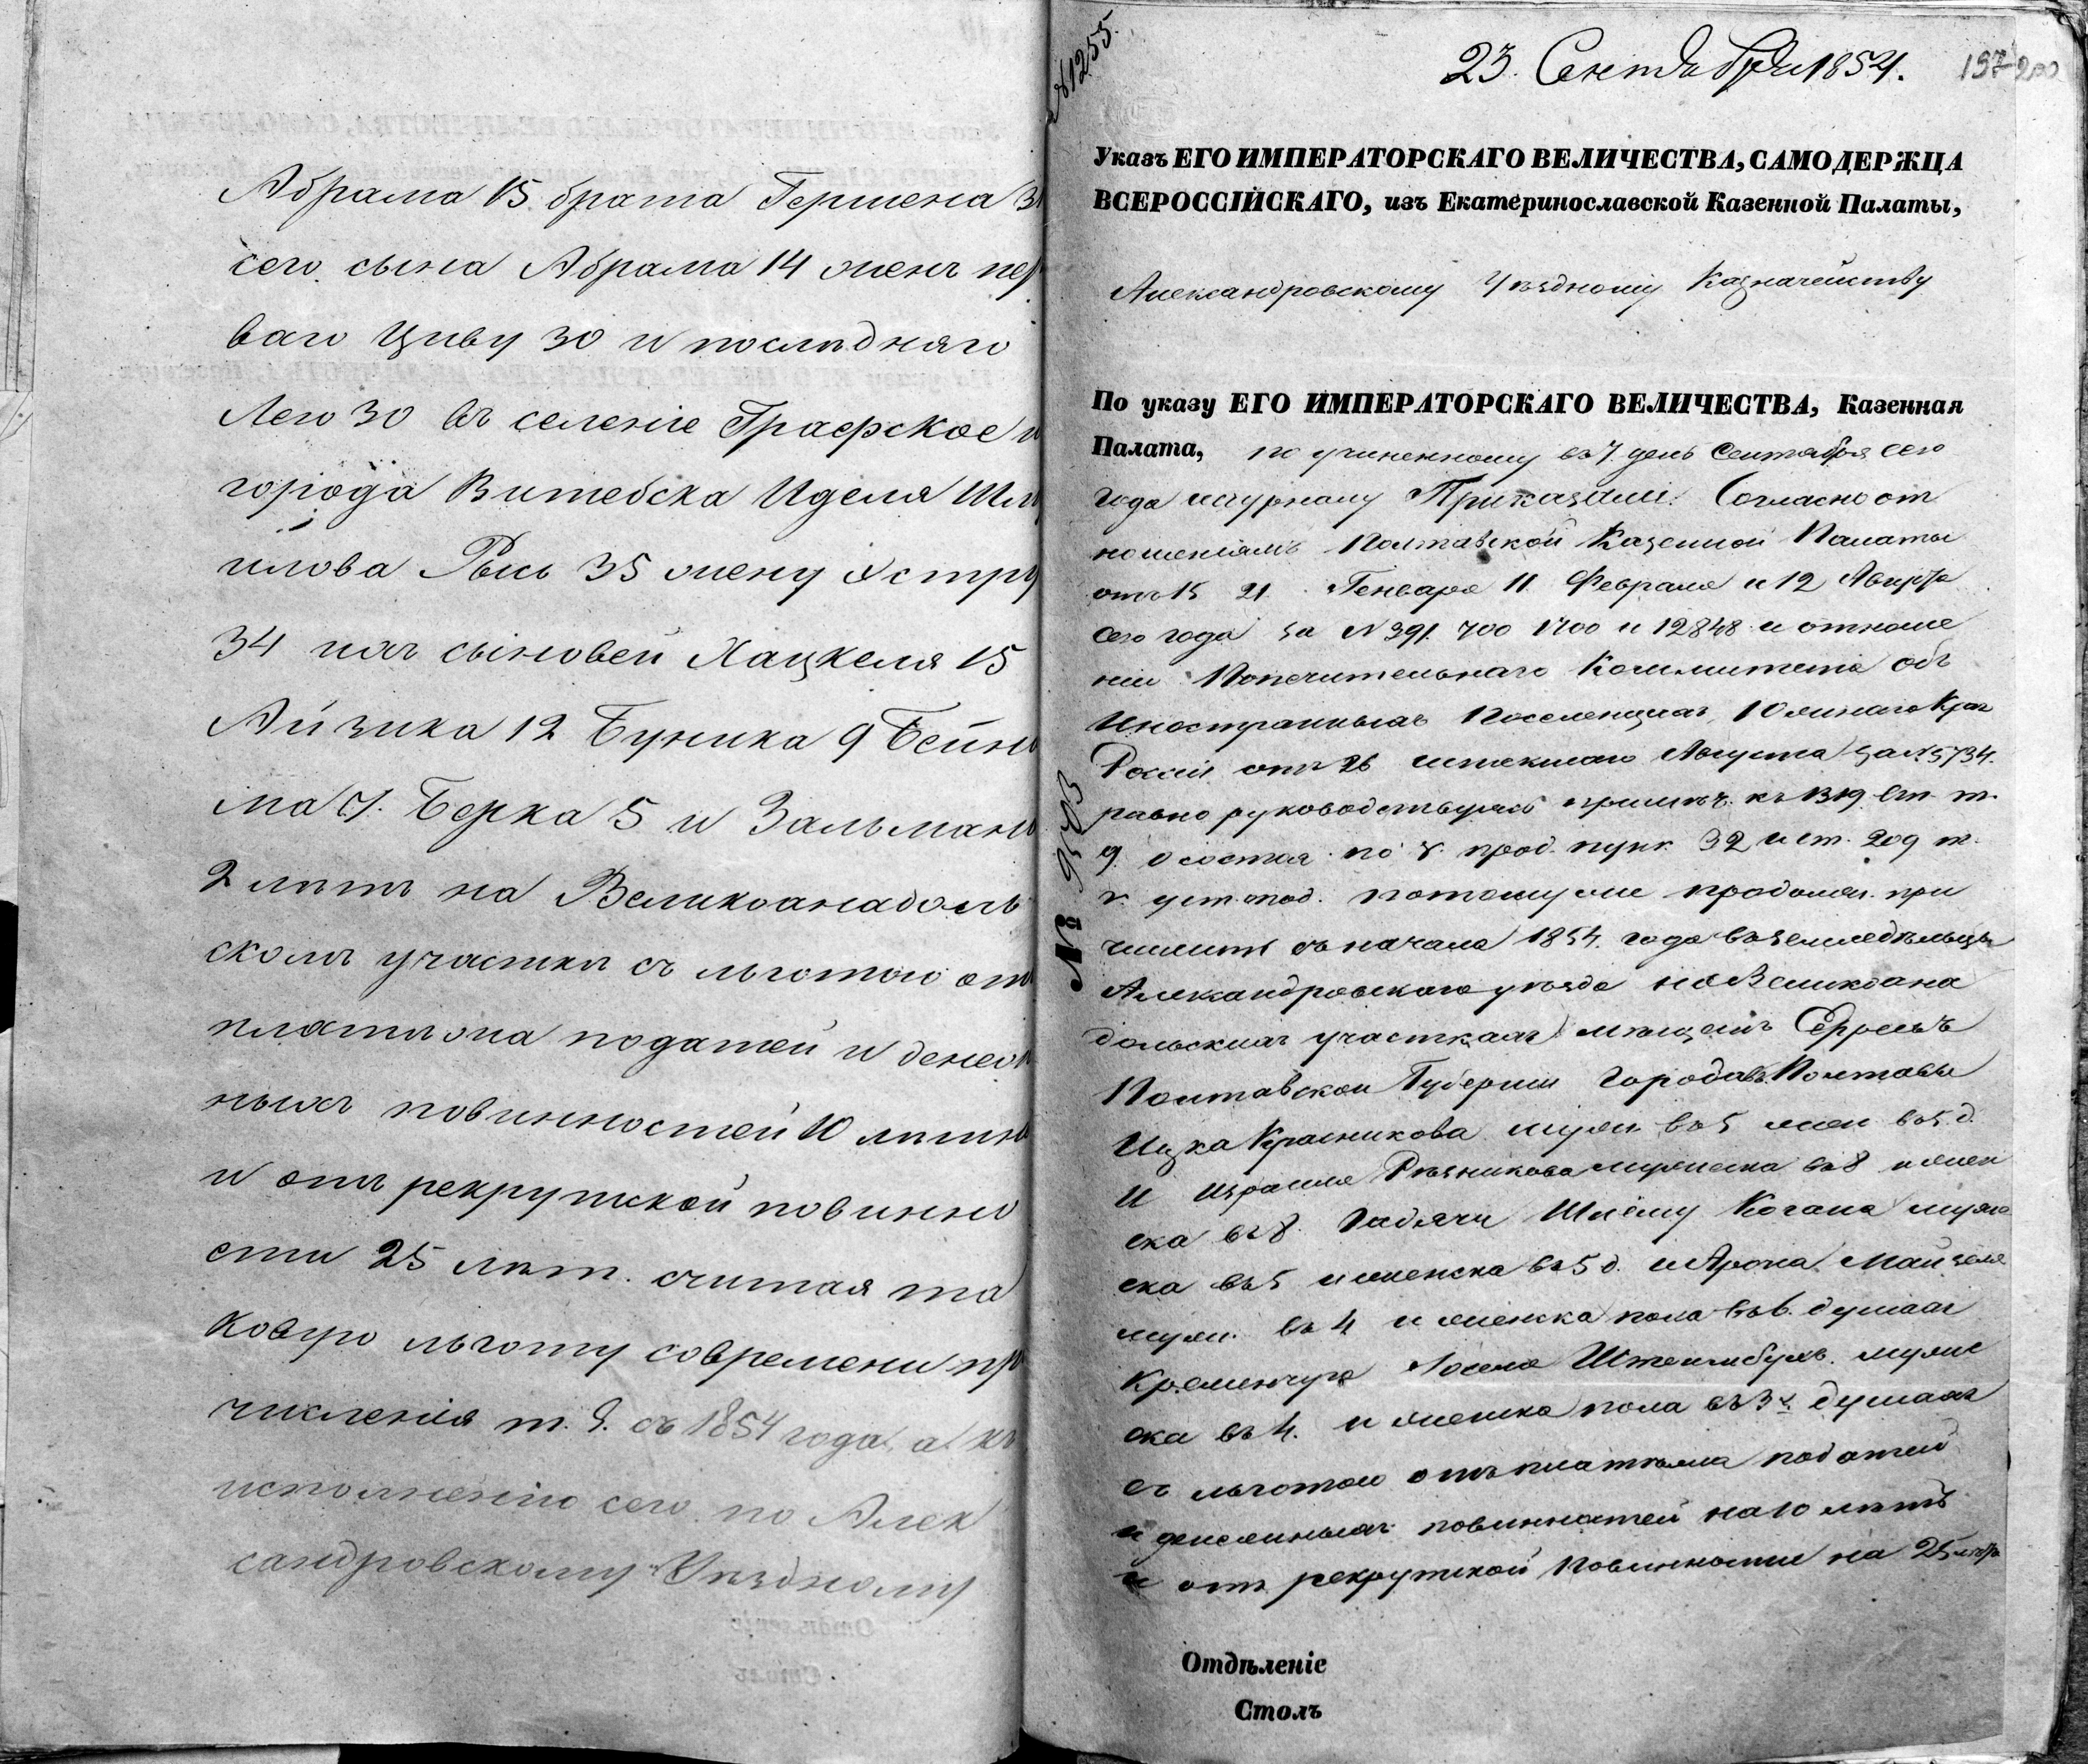 Абрама 15 брата Гершена 3
сего сына Абрама 14 женъ пер
ваго Циву 30 и последняго
Лею 30 въ селеніе Графское и
города Витебска Иделя Шму
илова Рысь 35 жену Эстру
34 ихъ сыновей Хацкеля 15
Айзика 12 Буника 9 Бейни
ма 7. Берка 5 и Зальмана
2 лѣтъ на Великоанадоль
скомъ участкѣ съ льготою от
платежа податей и денеж
ныхъ повинностей 10 лѣтн
и отъ рекрутской повинно
сти 25 лѣт. считая та
ковую льготу современи пр
численія т. е. съ 1854 года, а къ
исполненію сего по Алек
сандровскому Уѣздному
№ 1255.
23. Сентября 1854.
197 200
Указъ ЕГО ИМПЕРАТОРСКАГО ВЕЛИЧЕСТВА, САМОДЕРЖЦА
ВСЕРОССІЙСКАГО, изъ Екатеринославской Казенной Палаты,
Александровскому Уѣздному Казначейству
По указу ЕГО ИМПЕРАТОРСКАГО ВЕЛИЧЕСТВА, Казенная
Палата, по учиненному въ 7 день Сентября сего
года журналу Приказали: Согласно от
ношеніямъ Полтавской Казенной Палаты
отъ 15 21 Генваря 11 Февраля и 12 Августа
сего года за № 391. 700 1700 и 12848 и отноше
ніи Попечительнаго Комитета объ
Иностранныхъ Поселенцахъ Южнаго Края
Россіи отъ 26 истекшаго Августа за № 5734.
равно руководствуясь примѣч. къ 1319 ст. т.
9. о состоя. по прод. пунк. 32 и ст. 209 т.
уст. под. потому же продолж. при
числить съ начала 1854. года въ земледѣльцы
Александровскаго уѣзда на Великоана
дольскихъ участкахъ мѣщанъ Евреевъ
Полтавской Губерніи городовъ Полтавы
Ицка Красникова муж. въ 5 жен въ 5. д.
и Израиля Рѣзникова мужеска въ 8 и жен
ска въ 8. Гадячи Шлёму Когана муже
ска въ 5 и женска въ 5 д. и Арона
муж. въ 4 и женска пола въ 6. душахъ
Кременчуга мужес
ска въ 4. и женска пола въ 3х душахъ
съ льготою отъ платежа податей
и денежныхъ повинностей на 10 лѣтъ
и отъ рекрутской повинности на 25 лѣтъ
№ 9503
Отдѣленіе
Столъ